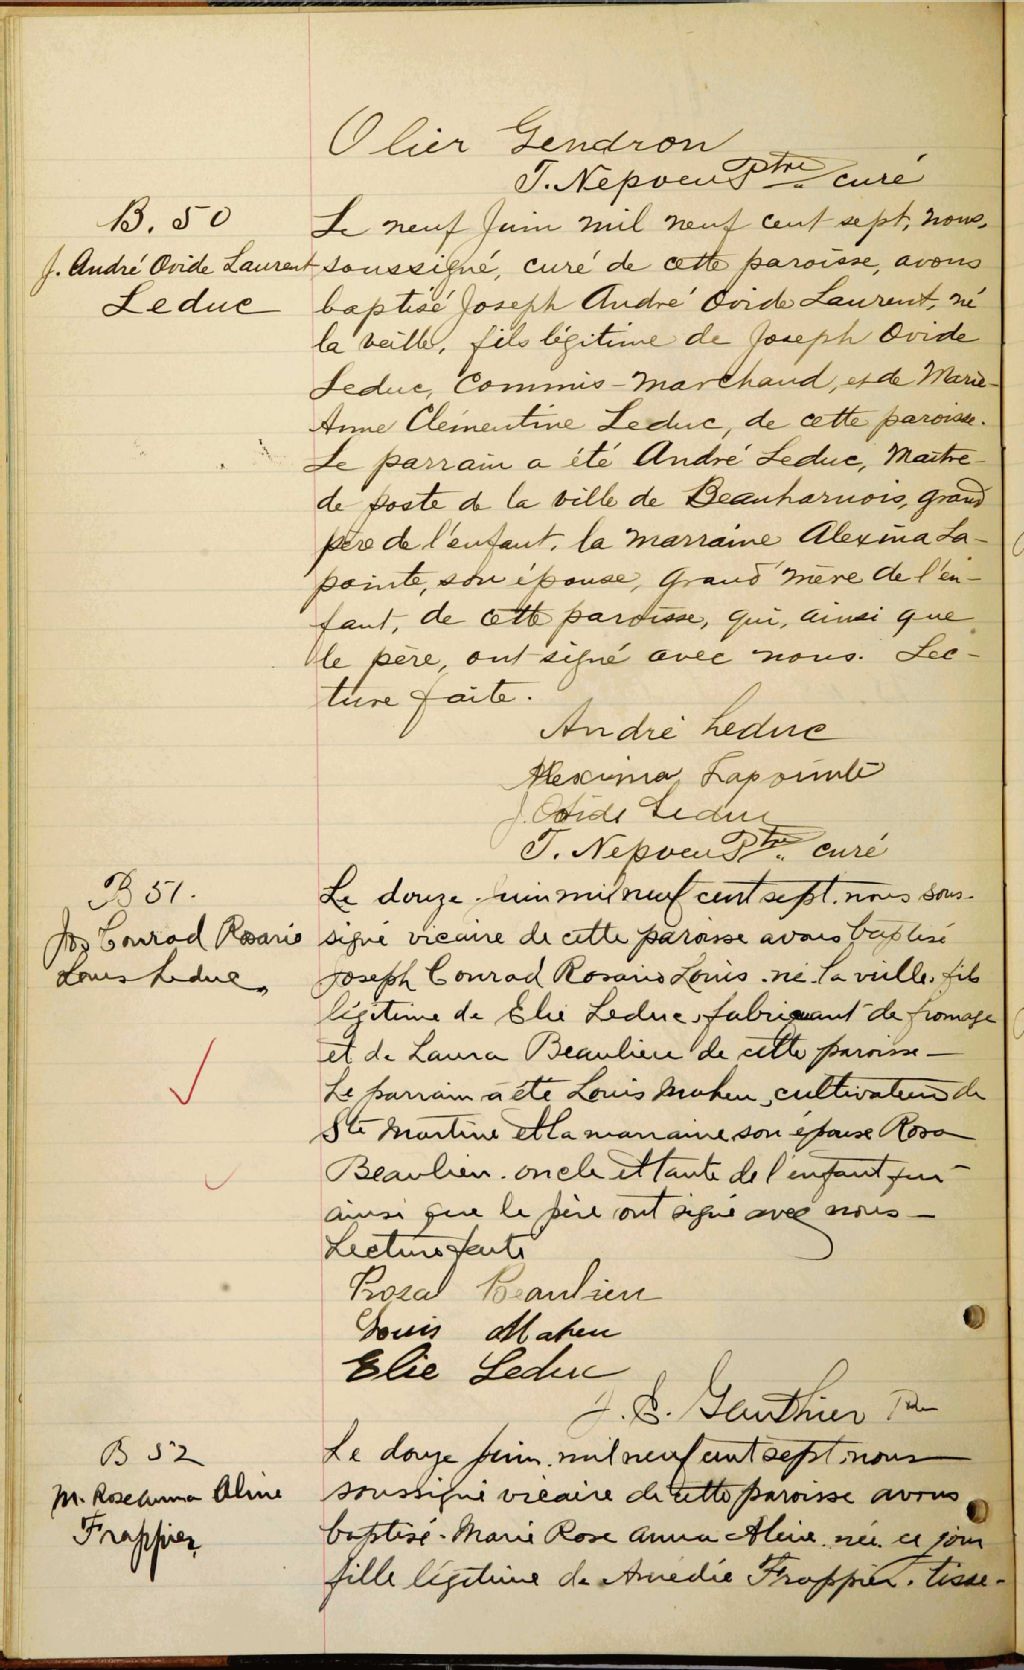 Olier Gendron
T. Nepveu Ptre curé
B. 50
J. André Ovide Laurent
Leduc
Le neuf Juin mil neuf cent sept, nous,
soussigné, curé de cette paroisse, avons
baptisé Joseph André Ovide Laurent, né
la veille, fils légitime de Joseph Ovide
Leduc, Commis-Marchand, et de Marie-
Anne Clémentine Leduc, de cette paroisse.
Le parrain a été André Leduc, Maître
de poste de la ville de Beauharnois, grand
père de l'enfant, la marraine Alexina La-
pointe, son épouse, grand'mère de l'en-
fant, de cette paroisse, qui, ainsi que
le père, ont signé avec nous. Lec-
ture faite.
André Leduc
Alexina Lapointe
J. Ovide Leduc
T. Nepveu Ptre curé
B 51.
Jos Conrad Rosario
Louis Leduc
Le douze Juin mil neuf cent sept, nous sous-
signé vicaire de cette paroisse avons baptisé
Joseph Conrad Rosario Louis né la veille, fils
légitime de Elie Leduc, fabriquant de fromage
et de Laura Beaulieu de cette paroisse —
Le parrain a été Louis Maheu, cultivateur de
Ste Martine et la marraine son épouse Rosa
Beaulieu oncle et tante de l'enfant qui
ainsi que le père ont signé avec nous —
Lecture faite
Rosa Beaulieu
Louis Maheu
Elie Leduc
J. E. Gauthier Ptre
B 52
M. Rose Anna Aline
Frappier
Le douze Juin mil neuf cent sept, nous
soussigné vicaire de cette paroisse avons
baptisé Marie Rose Anna Aline née ce jour
fille légitime de Amédée Frappier, tisse-